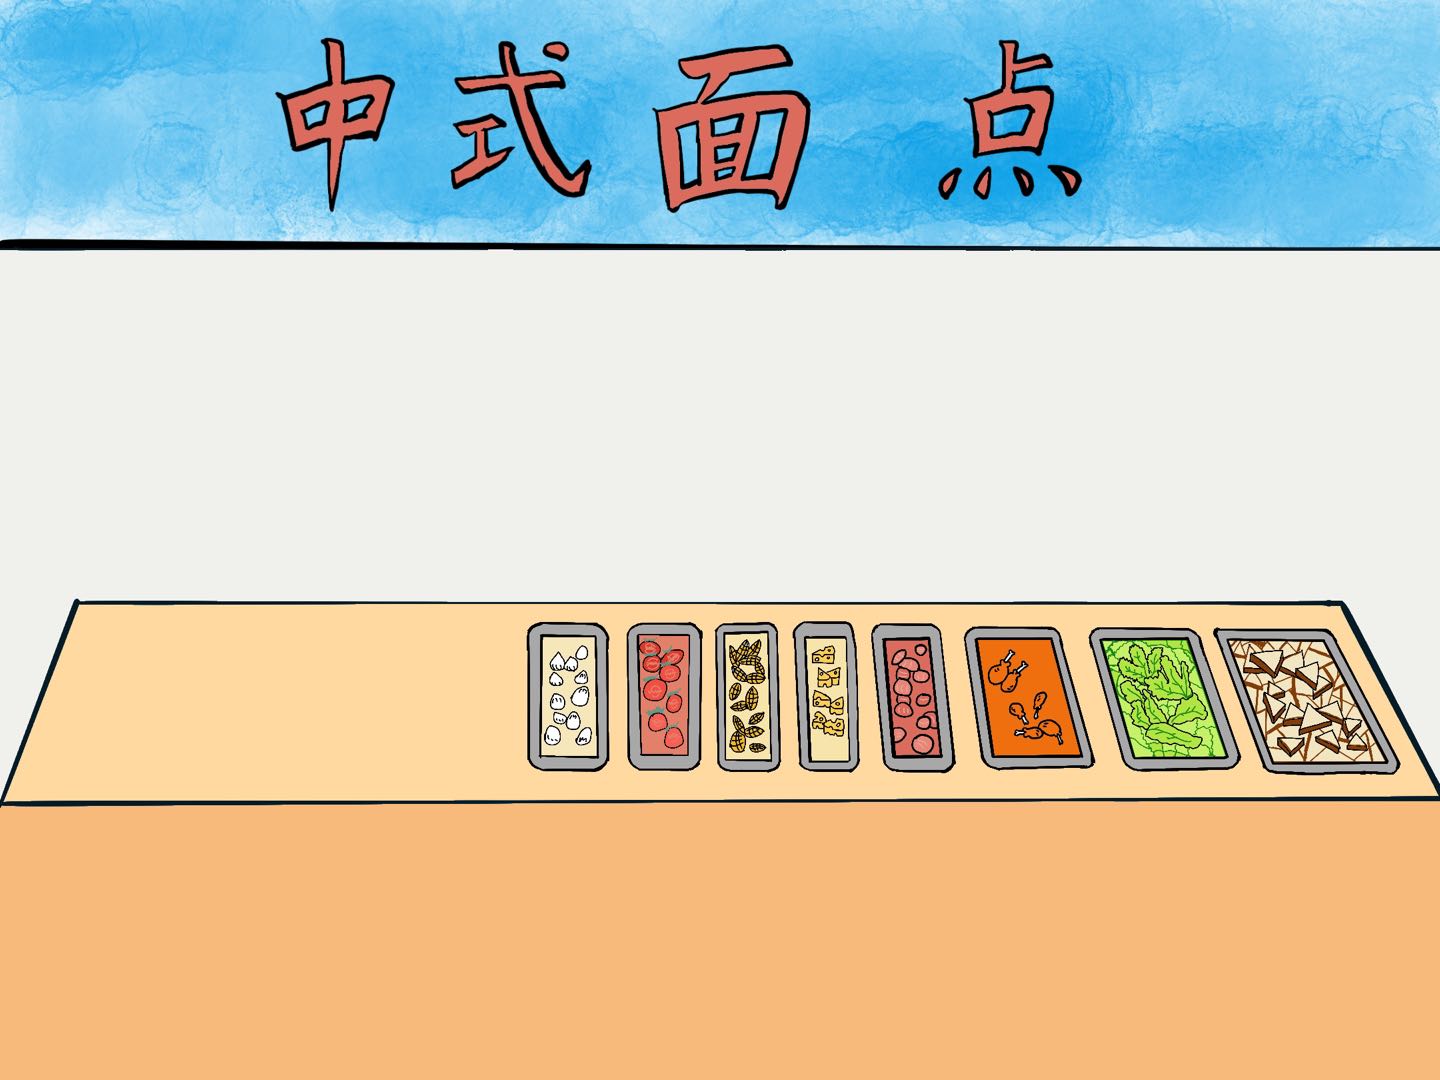 中式面点